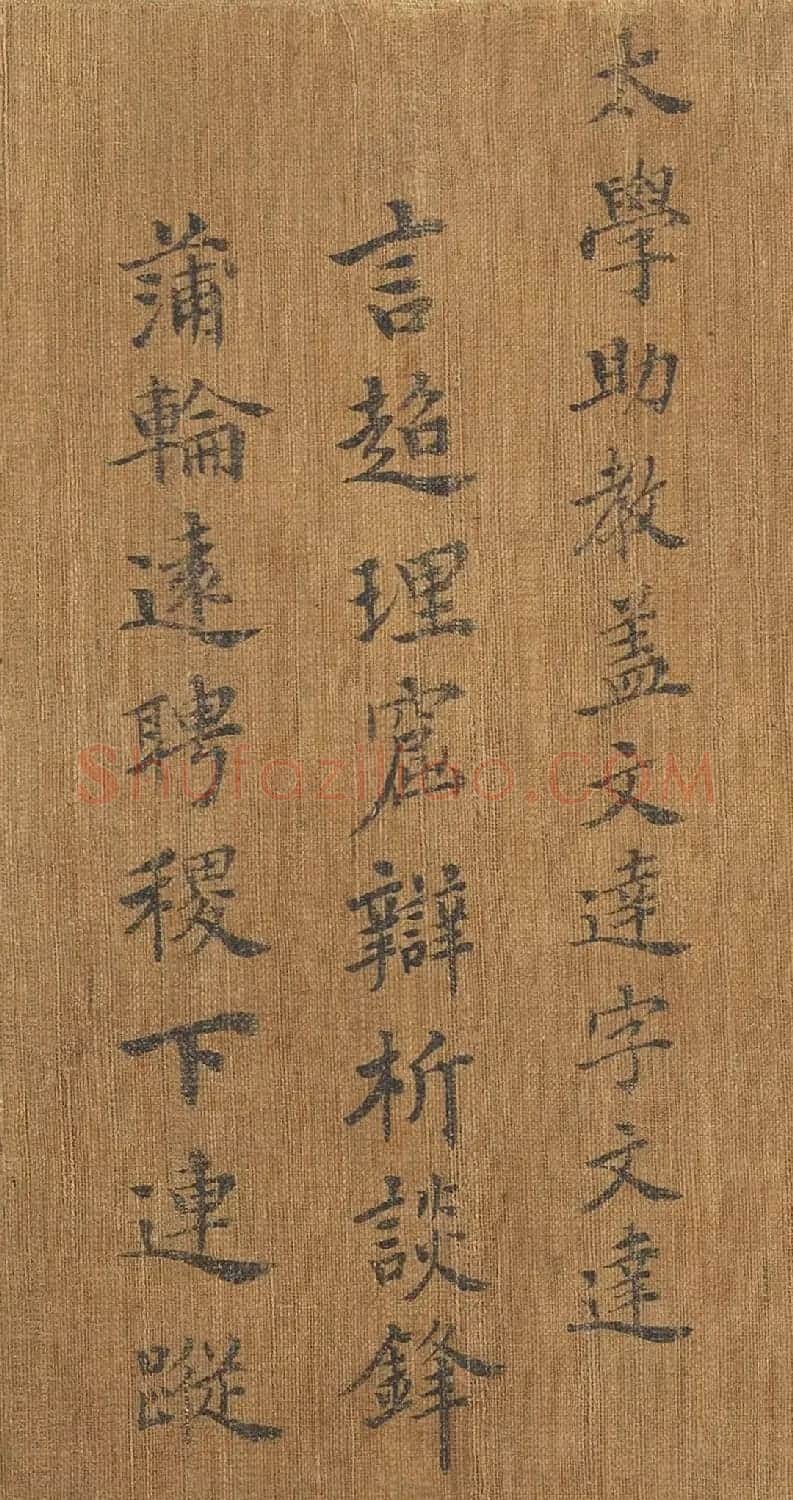 太學助教蓋文達字文達
言超理窟辯析談鋒
蒲輪遠聘稷下連蹤